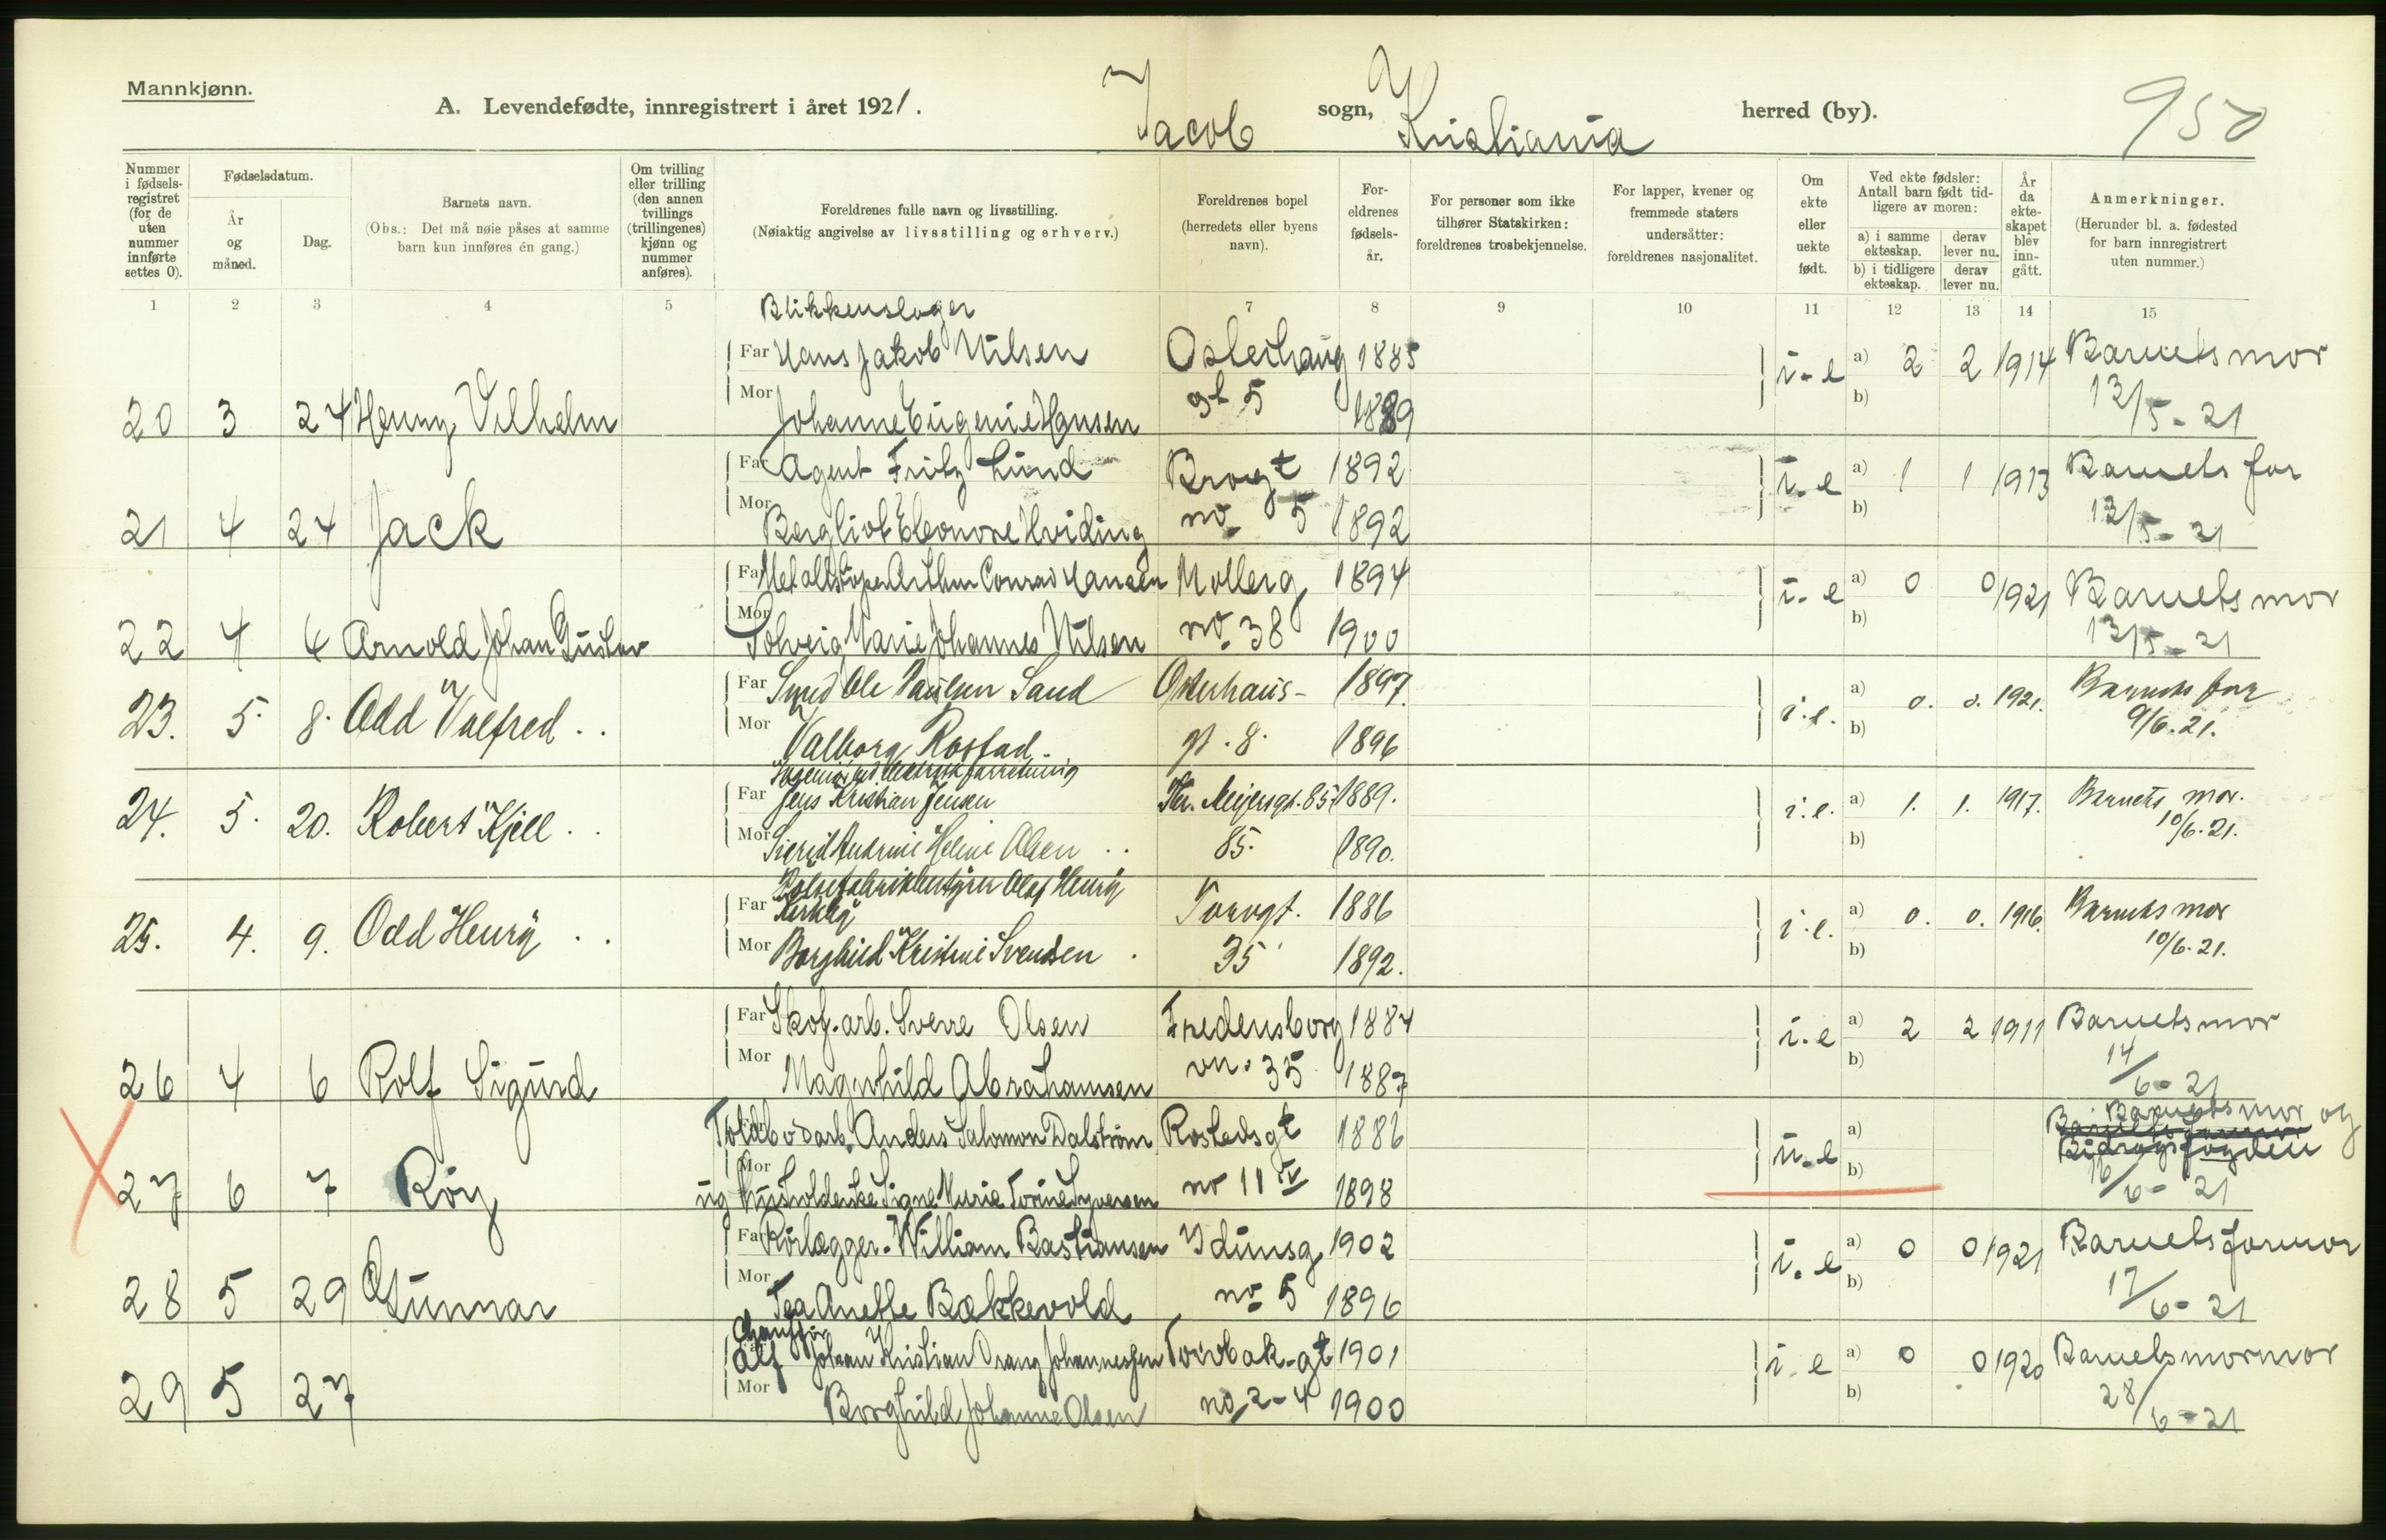 Mannkjønn.
A. Levendefødte, innregistrert i året 1921. Jacob sogn, Kristiania herred (by). 950
Nummer i fødsels-registret (for de uten nummer innførte settes 0).
Fødselsdatum.
År og måned.
Dag.
Barnets navn.
(Obs.: Det må nøie påses at samme barn kun innføres én gang.)
Om tvilling eller trilling (den annen tvillings (trillingenes) kjønn og nummer anføres).
Foreldrenes fulle navn og livsstilling.
(Nøiaktig angivelse av livsstilling og erhverv.)
Foreldrenes bopel
(herredets eller byens navn).
For-eldrenes fødsels-år.
For personer som ikke tilhører Statskirken: foreldrenes trosbekjennelse.
For lapper, kvener og fremmede staters undersåtter: foreldrenes nasjonalitet.
Om ekte eller uekte født.
Ved ekte fødsler: Antall barn født tid-ligere av moren:
a) i samme ekteskap. derav lever nu.
b) i tidligere ekteskap. derav lever nu.
År da ekte-skapet blev inn-gått.
Anmerkninger.
(Herunder bl. a. fødested for barn innregistrert uten nummer.)
1 2 3 4 5 7 8 9 10 11 12 13 14 15
Blikkenslager
Far Hans Jakob Nilsen Osterhaug 1885 i-e a) 2 2 1914 Barnets mor
20 3 24 Henry Vilhelm Mor Johanne Eugenie Hansen gt 5 1889 b) 13/5-21
Far Agent Fritz Lund Brogt 1892 i.e a) 1 1 1913 Barnets far
21 4 24 Jack Mor Bergliot Eleonore Hviding no 5 1892 b) 13/5-21
Far Metallstøper Arthur Conrad Hansen Møllerg 1894 i.e a) 0 0 1921 Barnets mor
22 4 6 Arnold Johan Gustav Mor Solveig Marie Johannes Nilsen no 38 1900 b) 13/5-21
Far Smed Ole Paulsen Sand Osterhaus- 1897. i.e. a) 0. 0. 1921. Barnets far
23. 5. 8. Odd Valfred . . Mor Valborg Rostad. gt. 8. 1896 b) 9/6.21.
Far Jens Kristian Jensen Thv. Meijersgt. 85 1889. i.e. a) 1. 1. 1917. Barnets mor.
24. 5. 20. Robert Kjell . . Mor Sigrid Andrine Helene Olsen . . 85. 1890. b) 10/6.21.
Pølsefabrikbestyrer Olaf Henry
Far Torvgt. 1886 i.e. a) 0. 0. 1916. Barnets mor
25. 4. 9. Odd Henry . . Mor Borghild Kristine Svendsen . 35 1892. b) 10/6.21.
Far Skof.arb. Sverre Olsen Fredensborg 1884 i.e a) 2 2 1911 Barnets mor
26 4 6 Rolf Sigurd Mor Magnhild Abrahamsen vn. 35 1887 b) 14/6-21
Toldbodarb. Anders Salomon Dalström Rostedsgt 1886 u.e a) Barnets mor og
Bidragsfogden
27 6 7 Roy Mor ug Husholderske Signe Marie Torine Syversen no 11 IV 1898 b) 16/6-21
Far Rørlægger. William Bastiansen Idunsg 1902 i.e a) 0 0 1921 Barnets farmor
28 5 29 Gunnar Mor Tea Anette Bækkevold no 5 1896 b) 17/6-21
Chauffør
Alf Johan Kristian Johannessen Torvbak-gt 1901 i.e a) 0 0 1920 Barnets mormor
29 5 27 Mor Borghild Johanne Olsen no 2-4 1900 b) 28/6-21